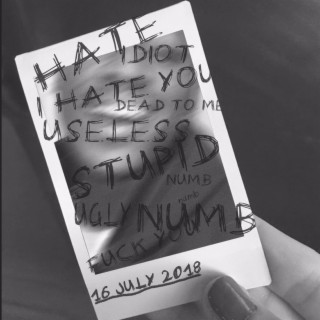 HATE
IDIOT
I HATE YOU
DEAD TO ME
USELESS
STUPID
NUMB
NUMB
UGLY NUMB
FUCK YOU
16 JULY 2018